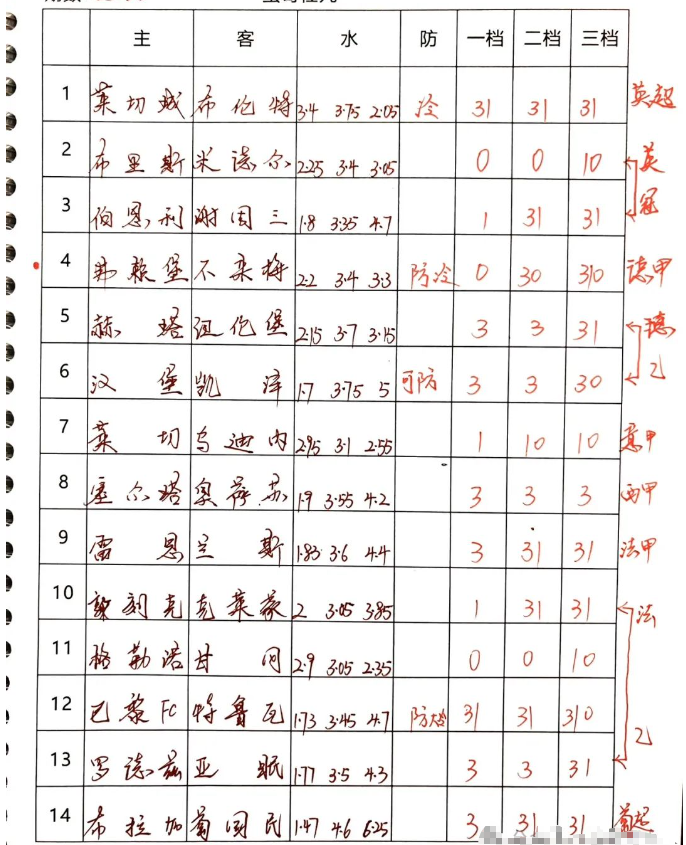 主 客 水 防 一档 二档 三档
1 莱切城 布伦特 3.4 3.75 2.05 冷 31 31 31 英超
2 布里斯 米德尔 2.25 3.4 3.05 0 0 10 英冠
3 伯恩利 谢周三 1.8 3.35 4.7 1 31 31
4 弗赖堡 不来梅 2.2 3.4 3.3 防冷 0 30 310 德甲
5 赫塔 纽伦堡 2.15 3.7 3.15 3 3 31 德乙
6 汉堡 凯泽 1.7 3.75 5 可防 3 3 30
7 莱切 乌迪内 2.95 3.1 2.55 1 10 10 意甲
8 塞尔塔 奥萨苏 1.9 3.55 4.2 3 3 3 西甲
9 雷恩 兰斯 1.83 3.6 4.4 3 31 31 法甲
10 敦刻克 克莱蒙 2 3.05 3.85 1 31 31 法乙
11 格勒诺 甘冈 2.9 3.05 2.35 0 0 10
12 巴黎FC 特鲁瓦 1.73 3.45 4.7 31 31 310
13 罗德兹 亚眠 1.77 3.5 4.3 3 3 31
14 布拉加 葡国民 1.47 4.6 6.25 3 31 31 葡超